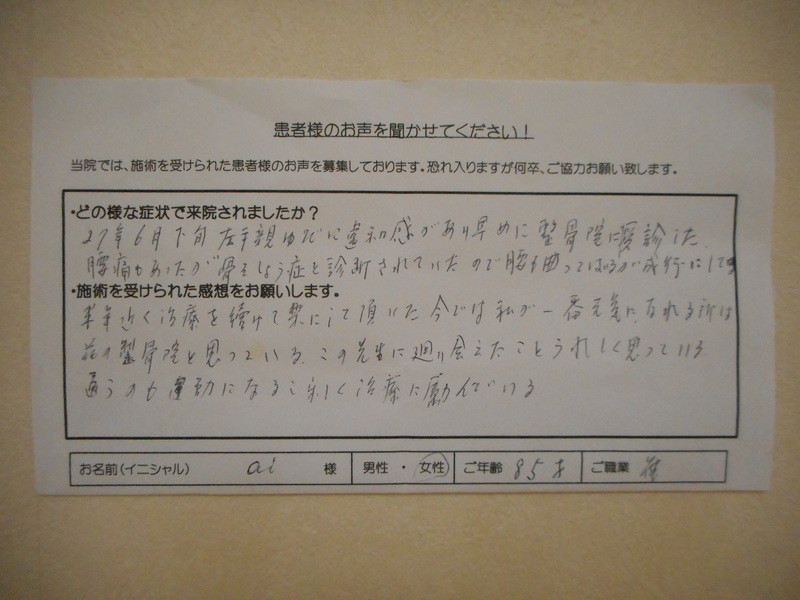 患者様のお声を聞かせてください！
当院では、施術を受けられた患者様のお声を募集しております。恐れ入りますが何卒、ご協力お願い致します。
・どの様な症状で来院されましたか？
27年6月下旬左手親ゆびに違和感があり早めに整骨院に受診した
腰痛もあったが骨そしょう症と診断されていたので腰も曲ってはいるが成行にして
・施術を受けられた感想をお願いします。
半年近く治療を続けて楽にして頂いた今では私が一番元気になれる所は
の整骨院と思っている。この先生に廻り会えたことうれしく思っている
通うのも運動になるし楽しく治療に励んでいる
お名前(イニシャル) ai 様 男性・女性 ご年齢 85才 ご職業